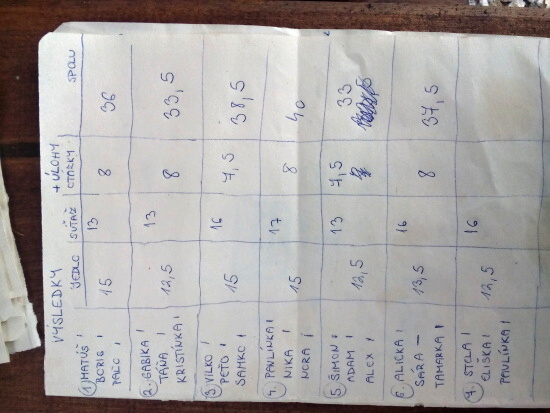 VÝSLEDKY
JEDLO SÚŤAŽ + ÚLOHY OTÁZKY SPOLU
1. MATÚŠ, BORIS, PAĽO, 15 13 8 36
2. GABIKA, TÁŇA, KRISTÍNKA, 12,5 13 8 33,5
3. VILKO, PEŤO, SAMKO, 15 16 7,5 38,5
4. PAVLÍNKA, NIKA, NORA, 15 17 8 40
5. ŠIMON, ADAM, ALEX, 12,5 13 7,5 33
6. ALIČKA, SARA - TAMARKA, 13,5 16 8 37,5
7. STELA, ELIŠKA, PAVLÍNKA, 12,5 16